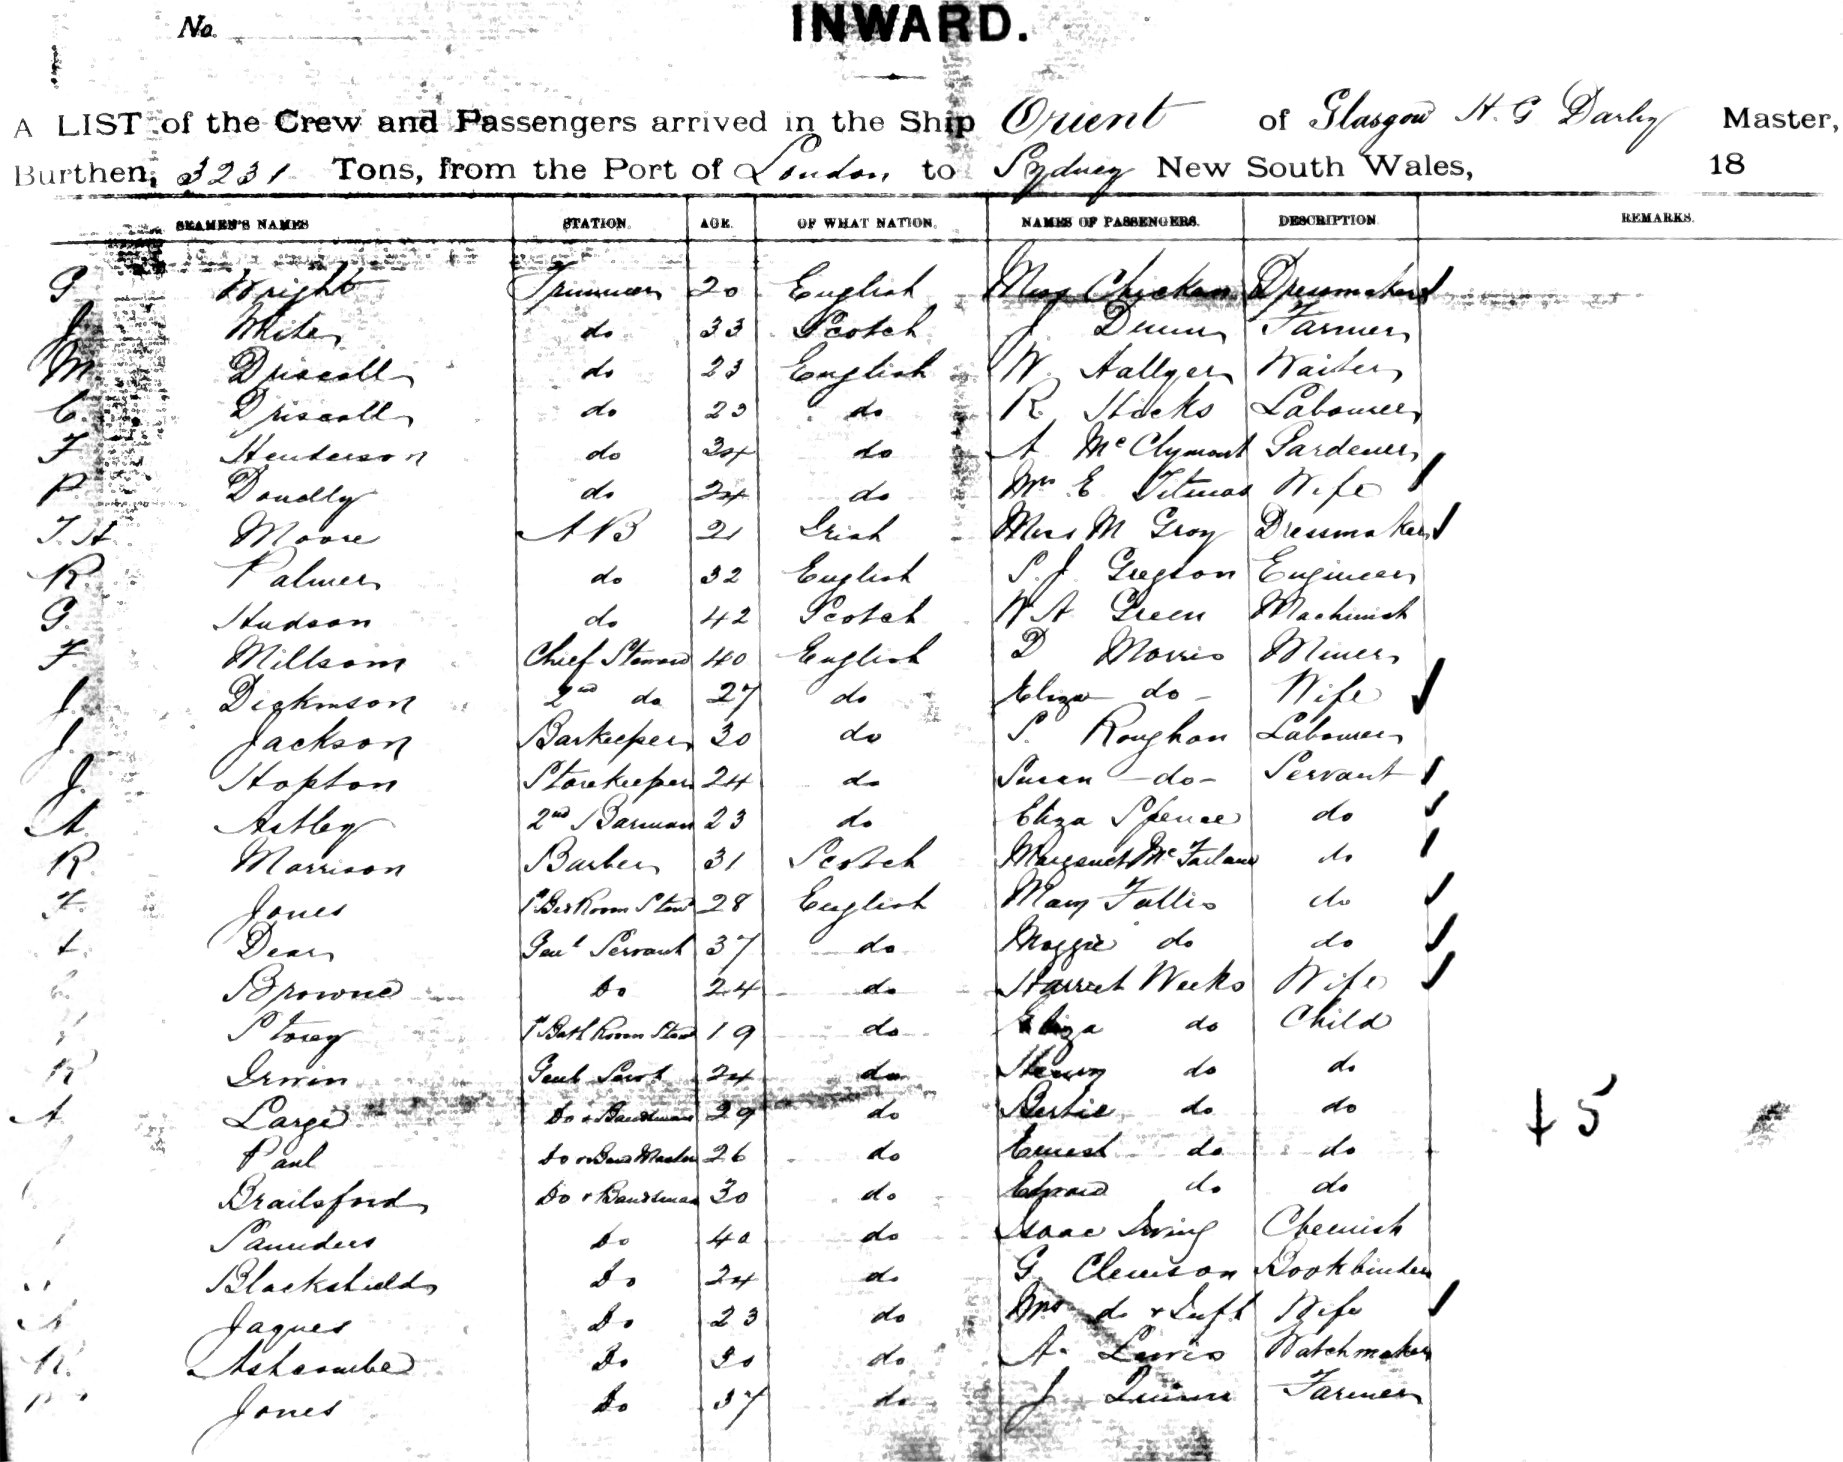 No.
INWARD.
A LIST of the Crew and Passengers arrived in the Ship Orient of Glasgow H. G Darby Master,
Burthen, 3231 Tons, from the Port of London to Sydney New South Wales, 18
SEAMEN'S NAMES STATION. AGE. OF WHAT NATION. NAMES OF PASSENGERS. DESCRIPTION. REMARKS.
G Wright Trimmer 20 English Chicken Dressmaker
J. White do 33 Scotch J Dunn Farmer
M. Driscoll do 23 English W. Hallyer Waiter
C. Driscoll do 23 do R. Hicks Labourer
F Henderson do 34 do A McClymont Gardener
P. Donelly do 24 do Mrs E Titmas Wife
T. H. Moore A B 21 Irish Miss M Gray Dressmaker
R. Palmer do 32 English S. J. Gregson Engineer
G. Hudson do 42 Scotch W A Green Machinist
F. Millsom Chief Steward 40 English D Morris Miner
J. Dickinson 2nd do 27 do Eliza do - Wife
J. Jackson Barkeeper 30 do S. Roughan Labourer
J. Hopton Storekeeper 24 do Susan - do - Servant
A. Astley 2nd Barman 23 do Eliza Spence do
R. Morrison Barber 31 Scotch Margaret McFarlane do
F. Jones Stew 28 English Mary Fallis do
Dear Genl Servant 37 do Maggie do do
Browne Do 24 do Harriet Weeks Wife
Storey Bath Room Stew 19 do Eliza do Child
R Irwin Genl Servt 24 do Henry do do
A. Large Do & Bandsman 29 do Bertie do do
Paul Do & Band Master 26 do Ernest do do
Brailsford Do & Bandsman 30 do Edward do do
Saunders Do 40 do Isaac Irving Chemist
Blackshields Do 24 do G. Clemson Bookbinder
A Jaques Do 23 do Mrs do & Inft Wife
R. Ashcombe Do 30 do A. Lewis Watchmaker
Jones Do 37 do J Quinn Farmer
5